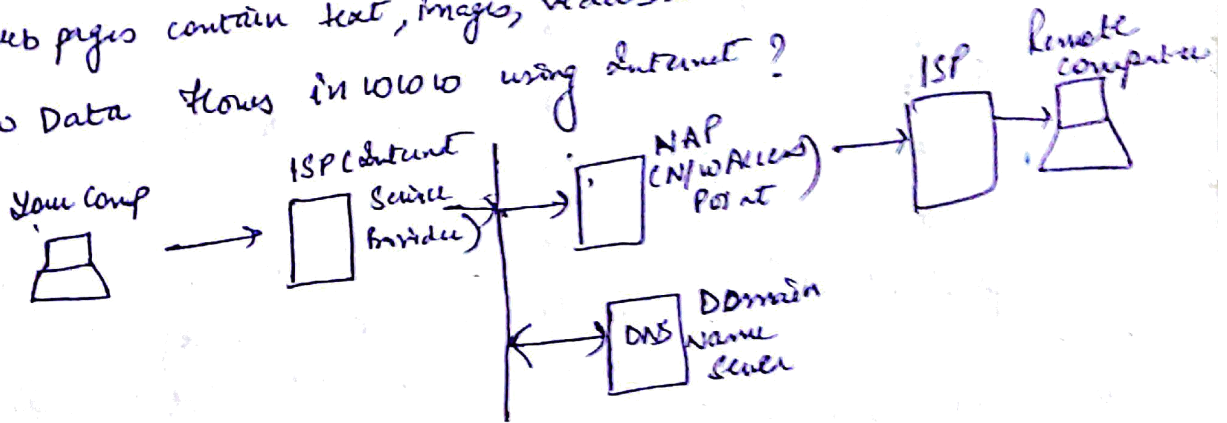 web pages contain text, images, videos
Data flows in WWW using Internet ?
Your Comp
ISP (Internet
Service
Provider)
NAP
(N/W Access
Point)
ISP
Remote
computer
DNS
Domain
Name
Server